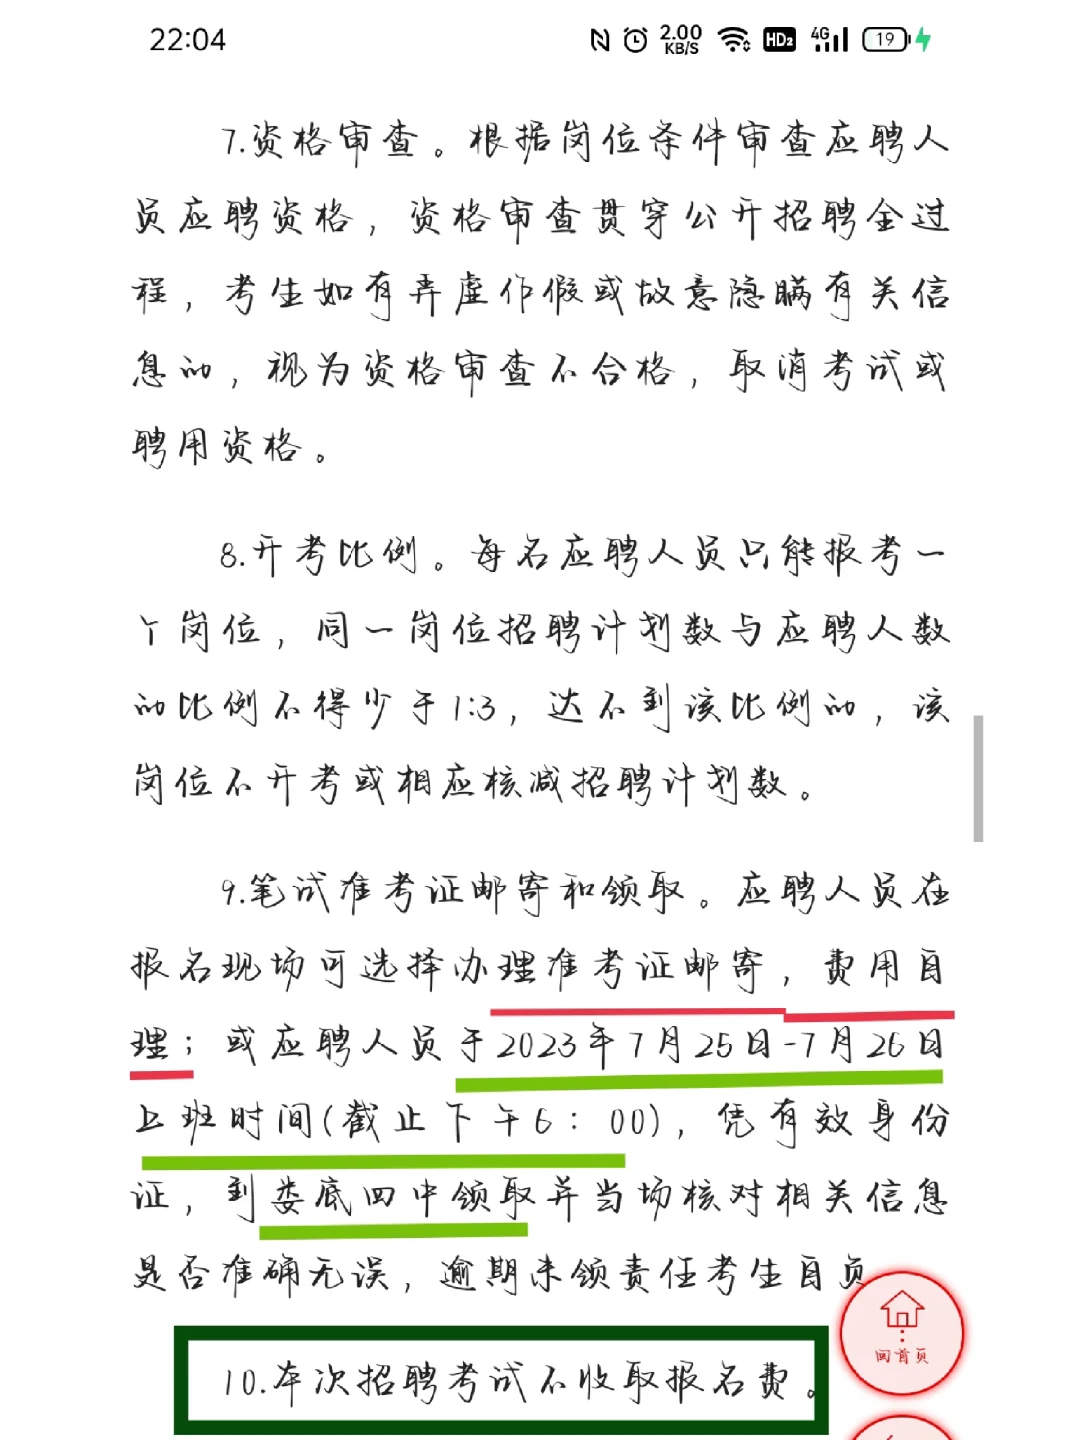 22:04
2.00 KB/S
HD2
4G
19
7.资格审查。根据岗位条件审查应聘人
员应聘资格，资格审查贯穿公开招聘全过
程，考生如有弄虚作假或故意隐瞒有关信
息的，视为资格审查不合格，取消考试或
聘用资格。
8.开考比例。每名应聘人员只能报考一
个岗位，同一岗位招聘计划数与应聘人数
的比例不得少于1:3，达不到该比例的，该
岗位不开考或相应核减招聘计划数。
9.笔试准考证邮寄和领取。应聘人员在
报名现场可选择办理准考证邮寄，费用自
理；或应聘人员于2023年7月25日-7月26日
上班时间(截止下午6：00)，凭有效身份
证，到娄底四中领取并当场核对相关信息
是否准确无误，逾期未领责任考生自负
回首页
10.本次招聘考试不收取报名费。